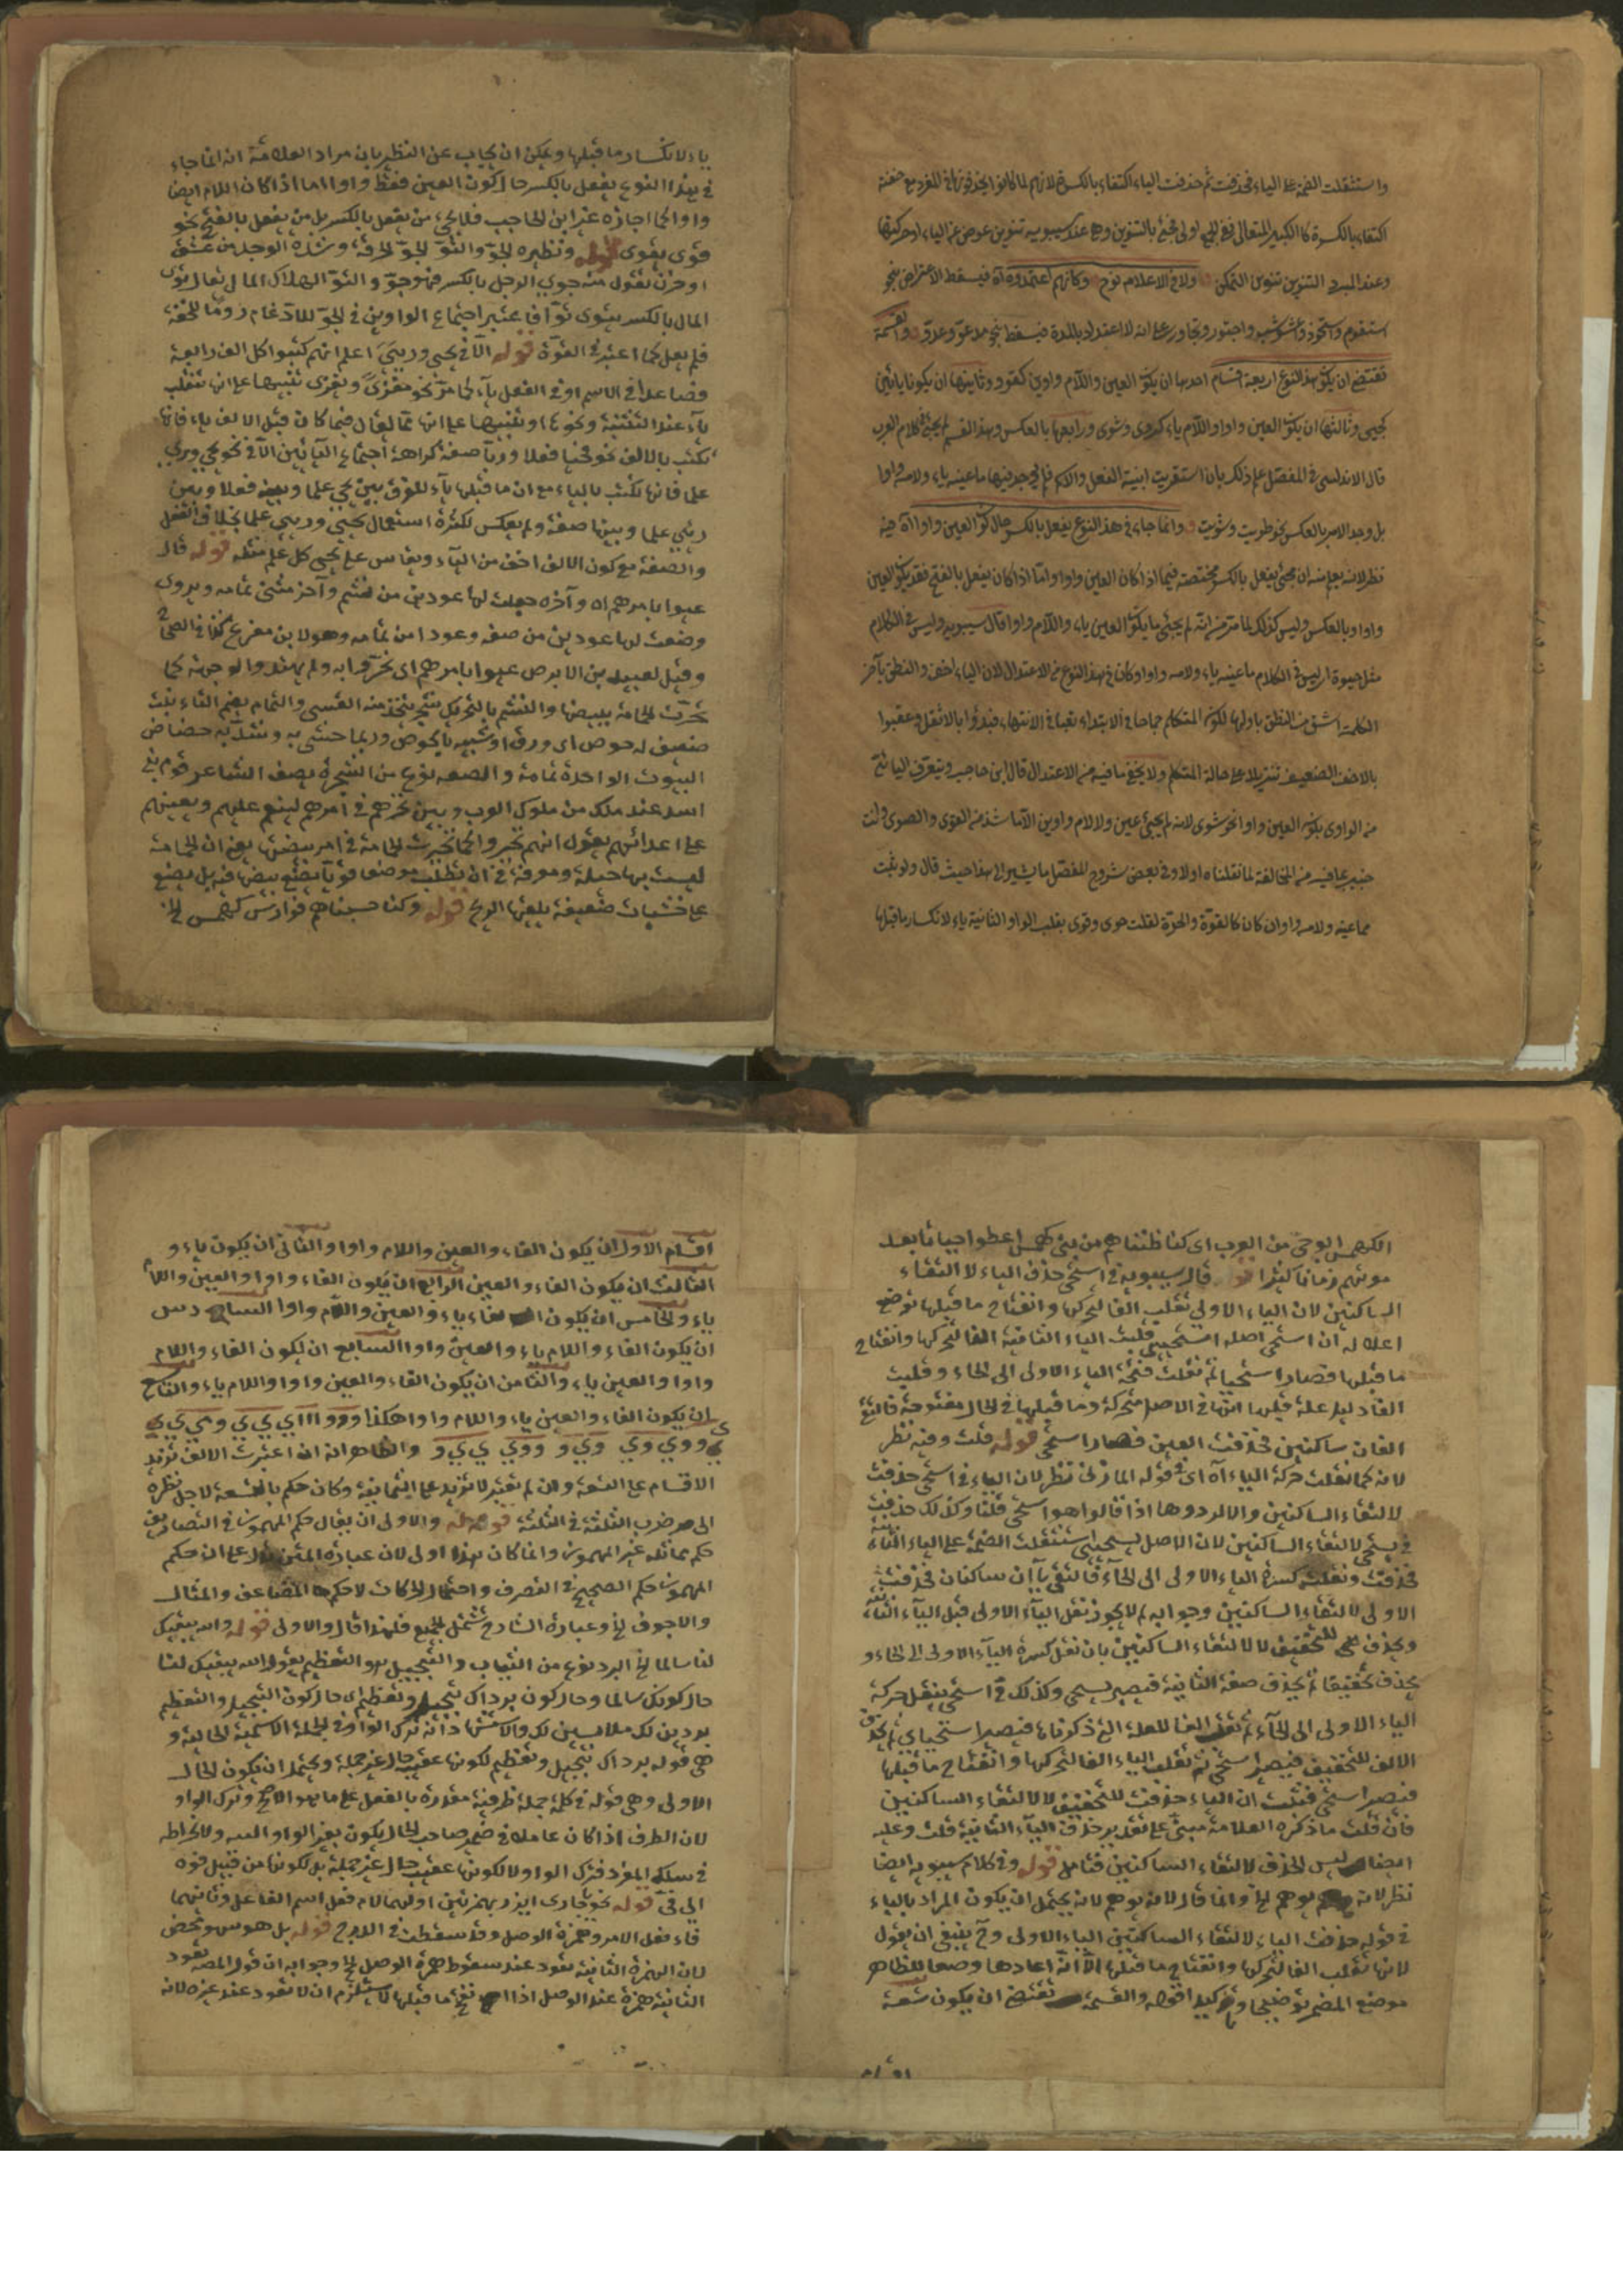 واستثقلت الضمة على الياء فحذفت ثم حذفت الياء اكتفاء بالكسرة لانهم لما كانوا يحذفونها في المفرد مع خفته
اكتفاء بالكسرة كالكبير المتعال ففي الجمع اولى فجئ بالتنوين وهي عند سيبويه تنوين عوض عن الياء او حركتها
وعند المبرد التنوين تنوين التمكن ولا في الاعلام نوح وكانهم اعتمدوه آه فيسقط الاعتراض بنحو
استقوم واستحوذ واجتور وتجاور على انه لا اعتداد بالمدة فيسقط نحو مدعو وعدو والقسمة
تقتضي ان يكون هذا النوع اربعة اقسام احدها ان يكون العين واللام واوين كقوو وثانيها ان يكونا يائين
كحيى وثالثها ان يكون العين واوا واللام ياء كروى وشوى ورابعها بالعكس وهذا القسم لم يجئ في كلام العرب
قال الاندلسي في المفصل علم ذلك بان استقريت ابنية الفعل والاسم فلم يوجد فيها ما عينه ياء ولامه واوا
بل وجد الامر بالعكس نحو طويت وشويت وانما جاء في هذا النوع يفعل بالكسر حال كون العين واوا آه فيه
نظر لانه يعلم منه ان مجئ يفعل بالكسر مختصة فيما اذا كان العين واوا واما اذا كان يفعل بالفتح فقد يكون العين
واوا وبالعكس وليس كذلك لما مر من انه لم يجئ ما يكون العين ياء واللام واوا قال سيبويه وليس في الكلام
مثل حيوة اي ليس في الكلام ما عينه ياء ولامه واوا وكان في هذا النوع من الاعتدال لان الياء اخف والنطق بآخر
الكلمة اشق من النطق باولها لكون المتكلم جماحا في الابتداء تعبا في الانتهاء فبدؤا بالاثقل وعقبوا
بالاخف الضعيف تنزيلا على حالة المتكلم ولا يخفى ما فيه من الاعتدال قال ابن حاجب ويتعرف اليائي
من الواوى بكون العين واوا نحو شوى لانه لم يجئ عين ولا لام واوين الا ما شذ من القوى والصوى وانت
خبير بما فيه من المخالفة لما نقلناه اولا وفي بعض شروح المفصل ما يشير الى هذا حيث قال ولو بنيت
مما عينه ولامه واوان كان كالقوة والحوة لقلت حوى وقوى بقلب الواو الثانية ياء لانكسار ما قبلها
ياء لانكسار ما قبلها ويمكن ان يجاب عن النظر بان مراد العلامة انه انما جاء
في هذا النوع يفعل بالكسر حال كون العين فقط واوا اما اذا كان اللام ايضا
واوا كما اجازه عن ابن الحاجب فلا يجئ من يفعل بالكسر بل من يفعل بالفتح نحو
قوى يقوى قوله ونظيره الجو والتو الجو الحرقة وشدة الوجد من عشق
او حزن تقول منه جوى الرجل بالكسر فهو جو والتو الهلاك المال يقال توى
المال بالكسر يتوى توا فاعتبر اجتماع الواوين في الجو للادغام روما للخفة
فلم يعل كما اعتبر في القوة قوله الا في يحيى وريى اعلم انهم كتبوا كل الف رابعة
فصاعدا في الاسم او في الفعل ياء كما مر نحو مغزى ويغزى تنبيها على انها تنقلب
ياء عند التثنية ونحوها وتنبيها على انها مما تمال فيما كان قبل الالف ياء فانها
تكتب بالالف نحو يحيا فعلا وريا صفة كراهة اجتماع اليائين الا في نحو يحيى وريى
علما فانها تكتب بالياء مع ان ما قبلها ياء للفرق بين يحيى علما وبينه فعلا وبين
ريى علما وبينها صفة ولم يعكس لكثرة استعمال يحيى وريى علما بخلاف الفعل
والصفة مع كون الالف اخف من الياء ويقاس على يحيى كل علم مثله قوله قال
عيوا بامرهم آه وآخره جعلت لها عودين من نشم وآخر مثنى ثمامه ويروى
وضعت لها عودين من صعه وعودا من ثمامه وهو لابن مفرغ كذا في الصحاح
وقيل لعبيد بن الابرص عيوا بامرهم اى تحيروا به ولم يهتدوا لوجهه كما
تحيرت الحمامة ببيضها والنشم بالتحريك شجر يتخذ منه القسى والثمام بضم الثاء نبت
ضعيف له خوص اى ورق او شبيه بالخوص وربما حشى به وسد به خصاص
البيوت الواحدة ثمامة والصعه نوع من الشجرة يصف الشاعر قوم بنى
اسد عند ملك من ملوك العرب وبين تحيرهم في امرهم لينعم عليهم ويعينهم
على اعدائهم يقول انهم تحيروا كما تحيرت الحمامة في امر بيضتها يعنى ان الحمامة
ليست بها حيلة ومعرفة في ان تطلب موضعا قويا تضع بيضها فيه بل يضع
على خشبات ضعيفة يلعبها الريح قوله وكنا حسبناهم فوارس كهمس الخ
الكهمس ابو حى من العرب اى كنا ظنناهم من بنى كهمس اعطوا حيا بعد
موتهم زمانا كثيرا قوله قال سيبويه في استحى حذف الياء لا التقاء
الساكنين لان الياء الاولى تقلب الفا لتحركها وانفتاح ما قبلها توضع
اعلاله ان استحى اصله استحيى قلبت الياء الثانية الفا لتحركها وانفتاح
ما قبلها فصار استحيا ثم نقلت فتحة الياء الاولى الى الحاء وقلبت
الفا دليل علة قبلها انها في الاصل متحركة وما قبلها في الحال مفتوحة فالتقى
الفان ساكنين فحذفت العين فصار استحى قوله قلت وفيه نظر
لانه كما نقلت حركة الياء آه اى في قوله المازنى نظر لان الياء في استحى حذفت
لالتقاء الساكنين والا لردوها اذا قالوا هو استحى قلنا وكذلك حذفت
في يستحى لالتقاء الساكنين لان الاصل يستحيى استثقلت الضمة على الياء الثانية
فحذفت ونقلت كسرة الياء الاولى الى الحاء فالتقى يا آن ساكنان فحذفت
الاولى لالتقاء الساكنين وجوابه لم لا يجوز نقل الياء الاولى قبل الياء الثانية
ويحذف للتخفيف لا لالتقاء الساكنين بان نقل كسرة الياء الاولى الى الحاء و
يحذف تخفيفا ثم يحذف صفة الثانية فيصير يستحى وكذلك في استحى بنقل حركة
الياء الاولى الى الحاء ثم تقلب الفا للعلة التى ذكرناها فيصير استحاى ثم يحذف
الالف للتخفيف فيصير استحى ثم تقلب الياء الفا لتحركها وانفتاح ما قبلها
فيصير استحى فثبت ان الياء حذفت للتخفيف لا لالتقاء الساكنين
فان قلت ما ذكره العلامة مبنى على تقدير حذف الياء الثانية قلت وعليه
ايضا ليس الحذف لالتقاء الساكنين فتامل قوله وفي كلام سيبويه ايضا
نظر لانه يوهم الخ وانما قال لانه يوهم لانه يحتمل ان يكون المراد بالياء
في قوله حذفت الياء لالتقاء الساكنين الياء الاولى وح ينبغى ان يقول
لانها تقلب الفا لتحركها وانفتاح ما قبلها الا انه اعادها وضعا للظاهر
موضع المضمر توضيحا وتوكيدا قوله والقسمة تقتضى ان يكون تسعة
اقسام
اقسام الاول ان يكون الفاء والعين واللام واوا والثانى ان يكون ياء و
الثالث ان يكون الفاء والعين الرابع ان يكون الفاء واوا والعين واللام
ياء والخامس ان يكون الفاء ياء والعين واللام واوا السادس
ان يكون الفاء واللام ياء والعين واوا السابع ان يكون الفاء واللام
واوا والعين ياء والثامن ان يكون الفاء والعين واوا واللام ياء والتاسع
ان يكون الفاء والعين ياء واللام واوا هكذا
والظاهر انه ان اعتبرت الالف تزيد
الاقسام على التسعة وان لم تعتبر لا تزيد على الثمانية وكان حكم بالتسعة لاجل نظره
الى ضرب الثلثة في الثلثة قوله والاولى ان يقال حكم المهموز في التصاريف
حكم مماثله غير المهموز وانما كان هذا اولى لان عبارة المتن يدل على ان حكم
المهموز حكم الصحيح في التصرف واحتمال الحركات لا حكم المضاعف والمثال
والاجوف الخ وعبارة الشارح تشتمل الجميع فلهذا قال والاولى قوله والله يبقيك
لنا سالما الخ البرد نوع من الثياب والتبجيل هو التعظيم يقول الله يبقيك لنا
حال كونك سالما وحال كون برداك تبجيل وتعظيم اى حال كون التبجيل والتعظيم
بردين لك ملابسين لك والاستشهاد انه ترك الواو في الجملة الاسمية الحالية و
هي قوله برداك تبجيل وتعظيم لكونها عقيب حال غير جملة ويحتمل ان يكون الحال
الاولى وهي قوله في كلمة جملة ظرفية مقدرة بالفعل على ما هو الاصح وترك الواو
لان الظرف اذا كان عاملا في ضمير صاحب الحال يكون بغير الواو البتة ولانخراطه
في سلك المفرد فترك الواو ولا لكونها عقيب حال غير جملة بل لكونها من قبيل فوه
الى فى قوله نحو بهمزتين اوليهما لام فعل اسم الفاعل وثانيهما
فاء فعل الامر وهمزة الوصل وقد سقطت في الدرج قوله بل هو سهو محض
لان الهمزة الثانية تعود عند سقوط همزة الوصل الخ وجوابه ان قول المصنف تعود
الثانية همزة عند الوصل اذا انفتح ما قبلها لا يستلزم ان لا تعود عند غيره لانه